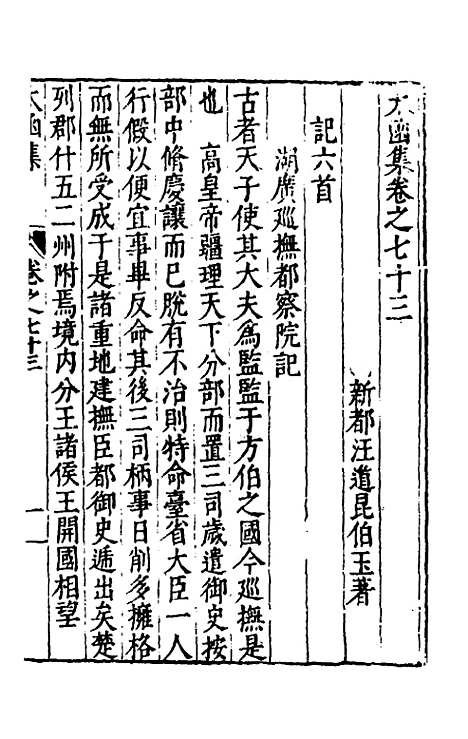 太函集卷之七十三
新都汪道昆伯玉著
記六首
湖廣巡撫都察院記
古者天子使其大夫為監監于方伯之國今巡撫是
也　高皇帝疆理天下分部而置三司歲遣御史按
部中脩慶讓而已脫有不治則特命臺省大臣一人
行假以便宜事畢反命其後三司柄事日削多擁格
而無所受成于是諸重地建撫臣都御史遞出矣楚
列郡什五二州附焉境內分王諸侯王開國相望
太函集
卷之七十三
一